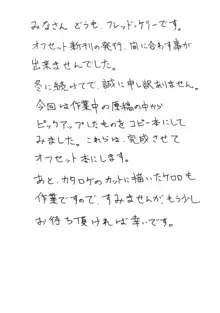 みなさん どうも、フレッド・ケリーです。
オフセット新刊の発行、間に合わす事が
出来ませんでした。
冬に続けてで、誠に申し訳ありません。
今回は作業中の原稿の中から
ピックアップしたものをコピー本にして
みました。これらは、完成させて
オフセット本にします。
あと、カタログのカットに描いたケロロも
作業ですので、すみませんが、もう少し
お待ち頂ければ幸いです。